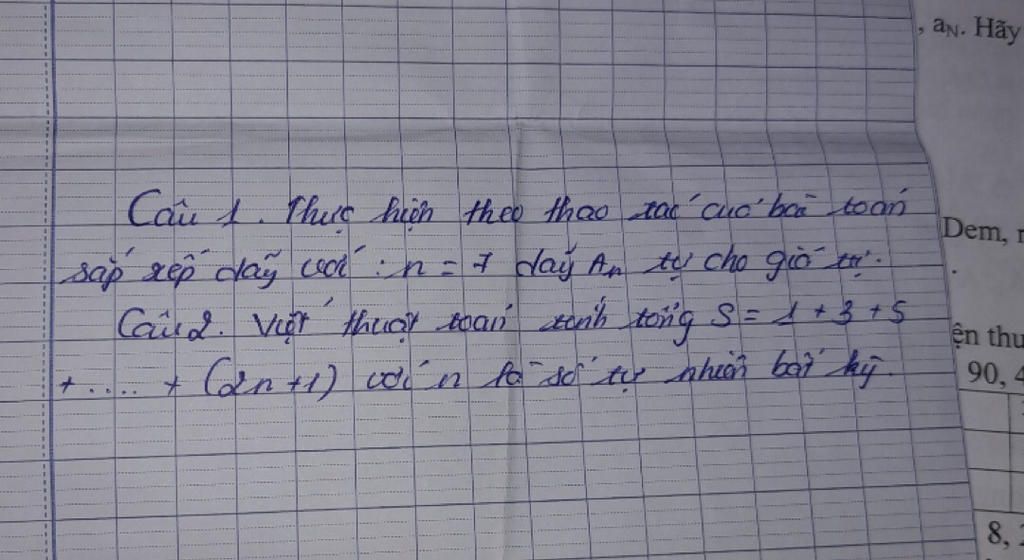 , aN. Hãy
Câu 1. Thực hiện theo thao tác của bài toán
Dem,
sắp xếp dãy với : n = 7 dãy An tự cho giá trị.
Câu 2. Viết thuật toán tính tổng S = 1 + 3 + 5
ện thu
+ ..... + (2n+1) với n là số tự nhiên bất kỳ.
90, 4
8,